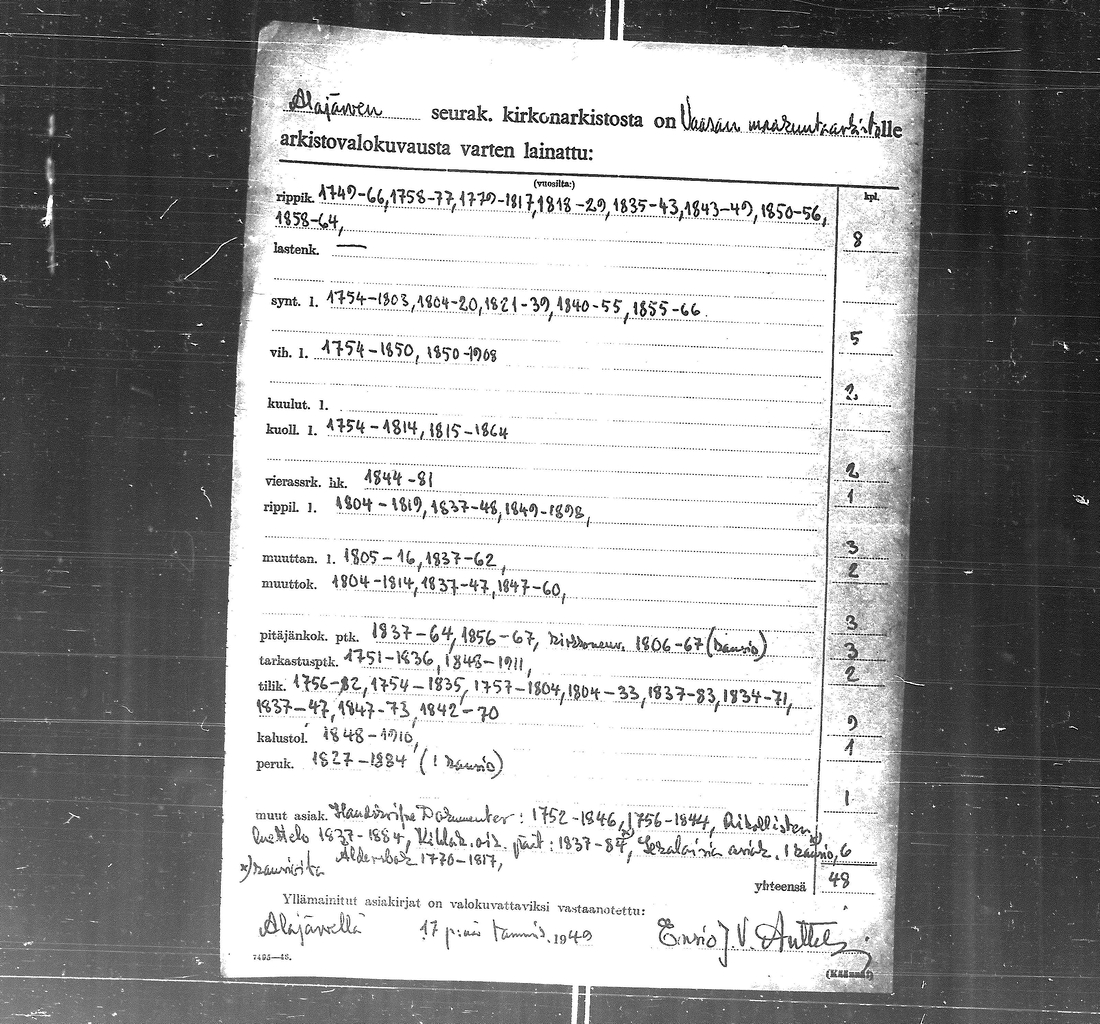 Alajärven seurak. kirkonarkistosta on Vaasan maakuntaarkistolle
arkistovalokuvausta varten lainattu:
(vuosilta:) kpl.
rippik. 1749-66, 1758-77, 1779-1817, 1818-29, 1835-43, 1843-49, 1850-56,
1858-64, 8
lastenk. —
synt. l. 1754-1803, 1804-20, 1821-39, 1840-55, 1855-66.
5
vih. l. 1754-1850, 1850-1908
2
kuulut. l.
kuoll. l. 1754-1814, 1815-1864
2
vierassrk. hk. 1844-81 1
rippil. l. 1804-1819, 1837-48, 1849-1898,
3
muuttan. l. 1805-16, 1837-62, 2
muuttok. 1804-1814, 1837-47, 1847-60,
3
pitäjänkok. ptk. 1837-64, 1856-67, kirkkoneuv. 1806-67 (kansio) 3
tarkastusptk. 1751-1836, 1848-1911, 2
tilik. 1756-82, 1754-1835, 1757-1804, 1804-33, 1837-83, 1834-71,
1837-47, 1847-73, 1842-70 9
kalustol. 1848-1910, 1
peruk. 1827-1884 (1 kansio)
1
muut asiak. Handskrifne Dokumenter: 1752-1846, 1756-1844, Rikollisten
luettelo 1837-1884, Kihlak. oik. päät: 1837-84, Sekalaisia asiak. 1 kansio, 6
x) kansioita Aldersbok 1770-1817,
yhteensä 48
Yllämainitut asiakirjat on valokuvattaviksi vastaanotettu:
Alajärvellä 17 p:nä tammik. 1949 Ensio J. V.
7495—48. (Käännä!)